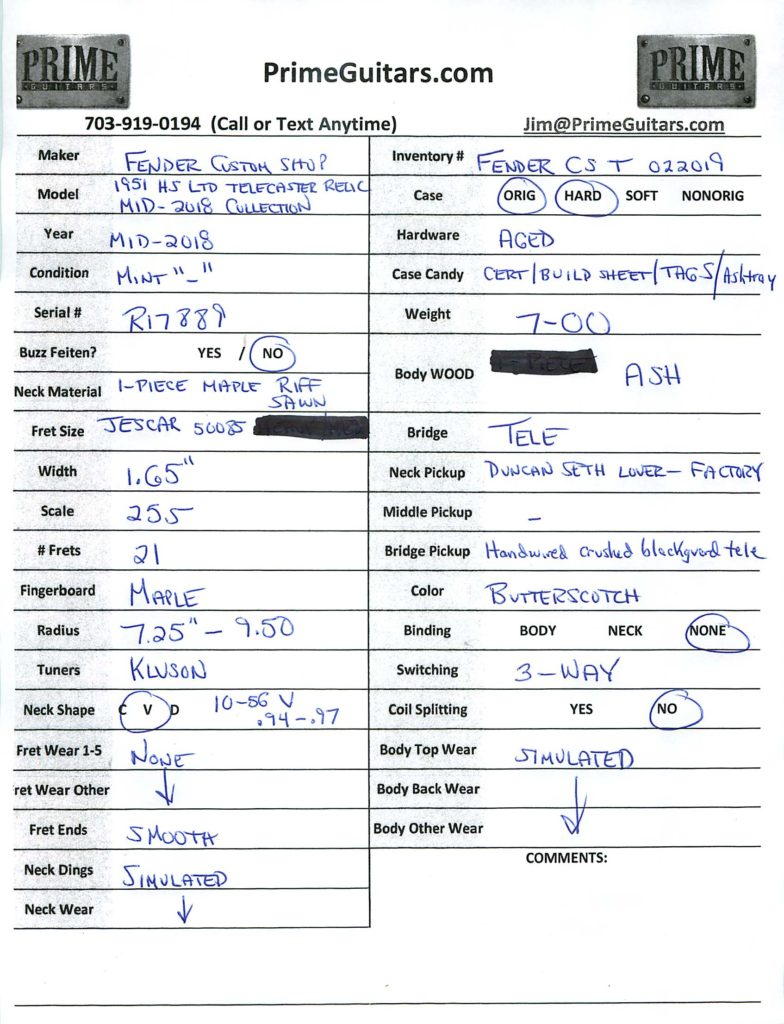 PRIME
GUITARS
PrimeGuitars.com
PRIME
GUITARS
703-919-0194 (Call or Text Anytime)
Jim@PrimeGuitars.com
Maker FENDER CUSTOM SHOP
Model 1951 HS LTD TELECASTER RELIC
MID-2018 COLLECTION
Year MID-2018
Condition MINT "-"
Serial # R17889
Buzz Feiten? YES / NO
Neck Material 1-PIECE MAPLE RIFF
SAWN
Fret Size JESCAR 50085
Width 1.65"
Scale 25.5
# Frets 21
Fingerboard MAPLE
Radius 7.25" - 9.50
Tuners KLUSON
Neck Shape C V D 10-56 V
.94-.97
Fret Wear 1-5 NONE
ret Wear Other ↓
Fret Ends SMOOTH
Neck Dings SIMULATED
Neck Wear ↓
Inventory # FENDER CS T 022019
Case ORIG HARD SOFT NONORIG
Hardware AGED
Case Candy CERT/BUILD SHEET/TAGS/Ashtray
Weight 7-00
Body WOOD ASH
Bridge TELE
Neck Pickup DUNCAN SETH LOVER- FACTORY
Middle Pickup -
Bridge Pickup Handwired crushed blackguard tele
Color BUTTERSCOTCH
Binding BODY NECK NONE
Switching 3-WAY
Coil Splitting YES NO
Body Top Wear SIMULATED
Body Back Wear ↓
Body Other Wear
COMMENTS: